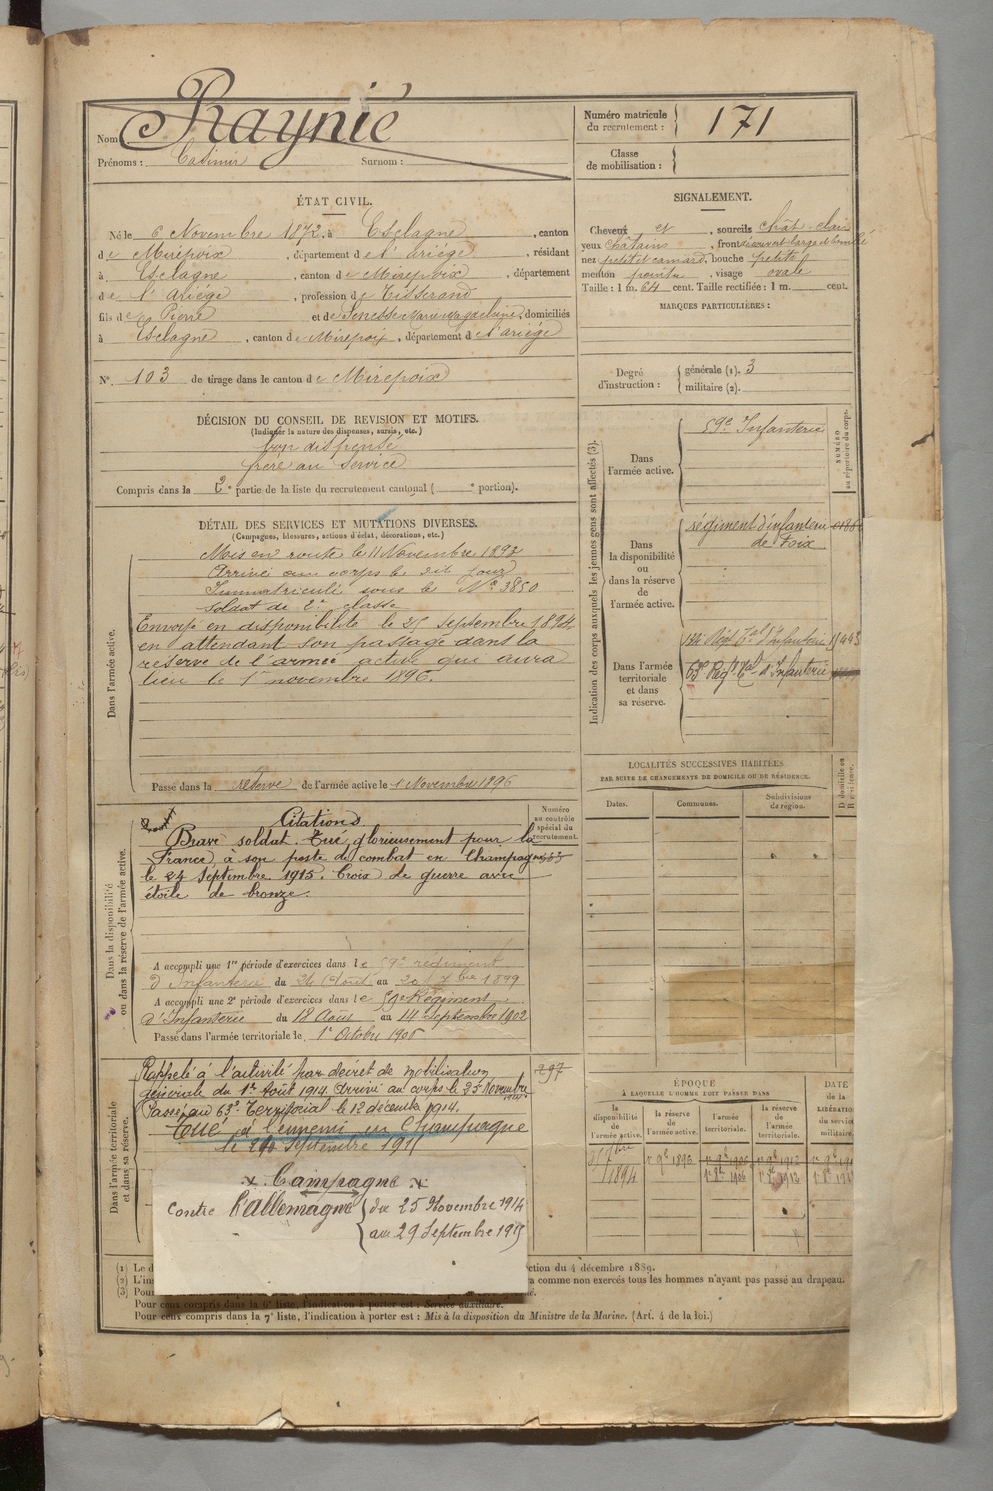 Nom : Raynié
Prénoms : Casimir Surnom :
Numéro matricule du recrutement : 171
Classe de mobilisation :
ÉTAT CIVIL.
Né le 6 Novembre 1872, à Esclagne, canton
de Mirepoix, département de l'Ariége, résidant
à Esclagne, canton de Mirepoix, département
de l'Ariége, profession de Tisserand
fils de Pierre et de Senesse Marie Magdelaine, domiciliés
à Esclagne, canton de Mirepoix, département de l'Ariége
N° 103 de tirage dans le canton de Mirepoix
DÉCISION DU CONSEIL DE REVISION ET MOTIFS.
(Indiquer la nature des dispenses, sursis, etc.)
bon dispensé
frère au service
Compris dans la 2e partie de la liste du recrutement cantonal ( e portion).
SIGNALEMENT.
Cheveux et, sourcils chât. clair
yeux châtains, front découvert large et bombé
nez petit et camard, bouche petite
menton pointu, visage ovale
Taille : 1 m. 64 cent. Taille rectifiée : 1 m. cent.
MARQUES PARTICULIÈRES :
Degré d'instruction :
générale (1). 3
militaire (2).
DÉTAIL DES SERVICES ET MUTATIONS DIVERSES.
(Campagnes, blessures, actions d'éclat, décorations, etc.)
Dans l'armée active.
Mis en route le 11 Novembre 1893
Arrivé au corps le dit jour
Immatriculé sous le N° 3850
Soldat de 2e classe
Envoyé en disponibilité le 25 septembre 1894
en attendant son passage dans la
réserve de l'armée active qui aura
lieu le 1er novembre 1896.
Passé dans la réserve de l'armée active le 1 Novembre 1896
Indication des corps auxquels les jeunes gens sont affectés (3).
NUMÉRO au répertoire du corps.
Dans l'armée active.
59e Infanterie
Dans la disponibilité ou dans la réserve de l'armée active.
régiment d'infanterie
de Foix
Dans l'armée territoriale et dans sa réserve.
Régt Tal d'Infanterie
63e Régt Tal d'Infanterie
LOCALITÉS SUCCESSIVES HABITÉES
PAR SUITE DE CHANGEMENTS DE DOMICILE OU DE RÉSIDENCE.
Dates.
Communes.
Subdivisions de région.
D domicile ou R résidence.
Dans la disponibilité ou dans la réserve de l'armée active.
Numéro au contrôle spécial du recrutement.
Citations
Brave soldat. Tué glorieusement pour la
France, à son poste de combat en Champagne
le 24 Septembre 1915. Croix de guerre avec
étoile de bronze.
A accompli une 1re période d'exercices dans le 59e régiment
d'Infanterie du 24 Août au 20 7bre 1899
A accompli une 2e période d'exercices dans le 59e Régiment
d'Infanterie du 18 Août au 14 Septembre 1902
Passé dans l'armée territoriale le 1er Octobre 1906
Dans l'armée territoriale et dans sa réserve.
297
Rappelé à l'activité par décret de mobilisation
générale du 1er Août 1914. Arrivé au corps le 25 Novembre
1914.
Passé au 63e Territorial le 12 décembre 1914.
Tué à l'ennemi en Champagne
Septembre 1915
Campagne
contre l'allemagne
du 25 Novembre 1914
au 29 Septembre 1915
ÉPOQUE
À LAQUELLE L'HOMME DOIT PASSER DANS
la disponibilité de l'armée active.
la réserve de l'armée active.
l'armée territoriale.
la réserve de l'armée territoriale.
DATE de la LIBÉRATION du service militaire.
1894
(1) Le d
ction du 4 décembre 1889.
(2) L'ins
a comme non exercés tous les hommes n'ayant pas passé au drapeau.
(3) Pour
Pour ceux compris dans la 6e liste, l'indication à porter est : Service auxiliaire.
Pour ceux compris dans la 7e liste, l'indication à porter est : Mis à la disposition du Ministre de la Marine. (Art. 4 de la loi.)